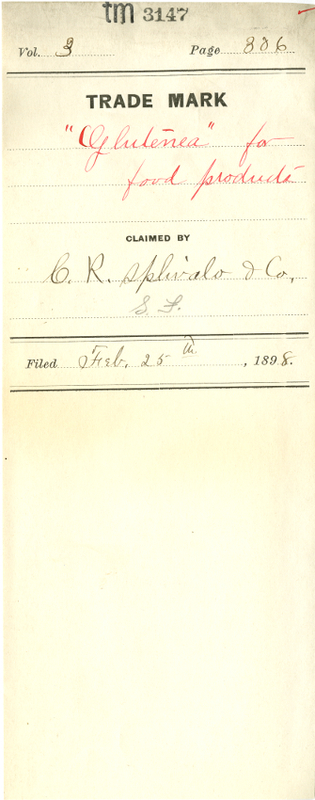 tm 3147
Vol. 3 Page 806
TRADE MARK
"Glutenea" for
food products
CLAIMED BY
C. R. Splivalo & Co,
S. F.
Filed Feb. 25th, 1898.